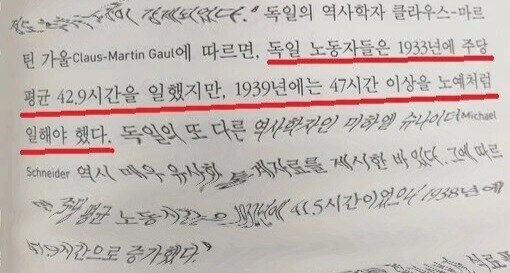 강제되었다." 독일의 역사학자 클라우스-마르
틴 가울Claus-Martin Gaul에 따르면, 독일 노동자들은 1933년에 주당
평균 42.9시간을 일했지만, 1939년에는 47시간 이상을 노예처럼
일해야 했다. 독일의 또 다른 역사학자인 미하엘 슈나이더Michael
Schneider 역시 매우 유사한 자료를 제시한 바 있다. 그에 따르
면 주당 평균 노동시간은 41.5시간이었으나 1938년에
시간으로 증가했다."